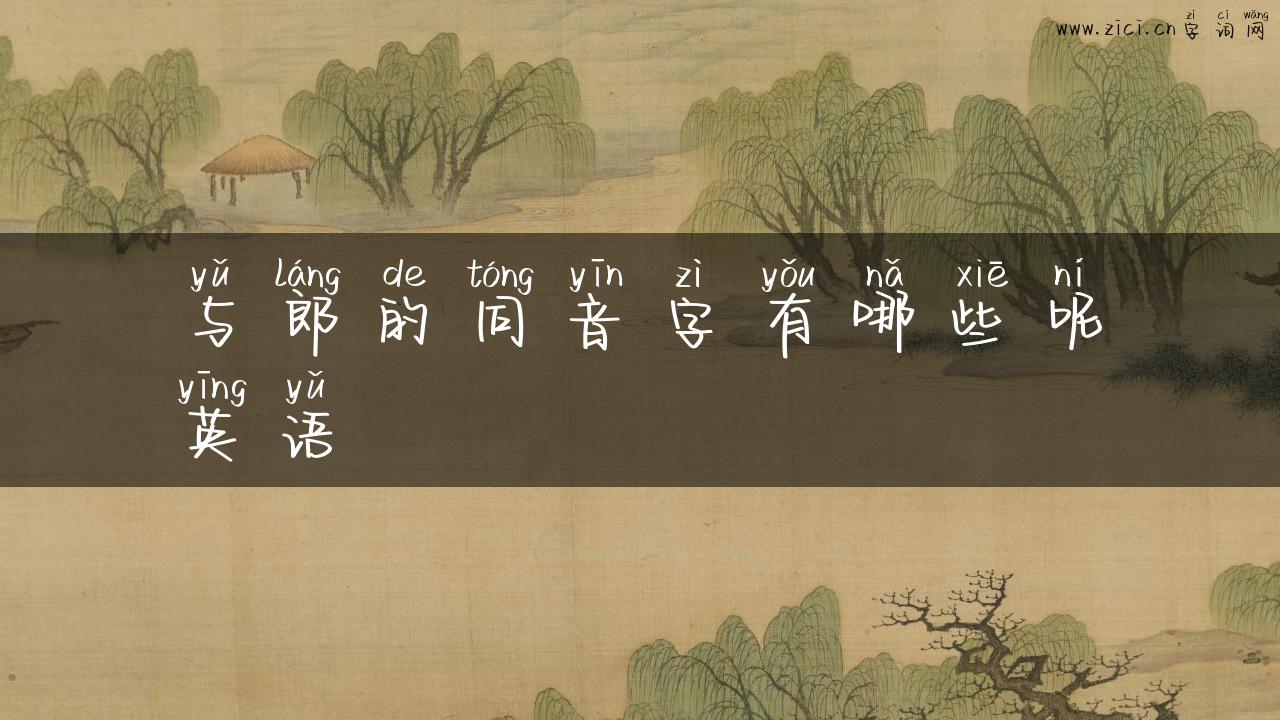 zì cí wǎng
www.zici.cn 字 词 网
yǔ láng de tóng yīn zì yǒu nǎ xiē ní
与 郎 的 同 音 字 有 哪 些 呢
yīng yǔ
英 语